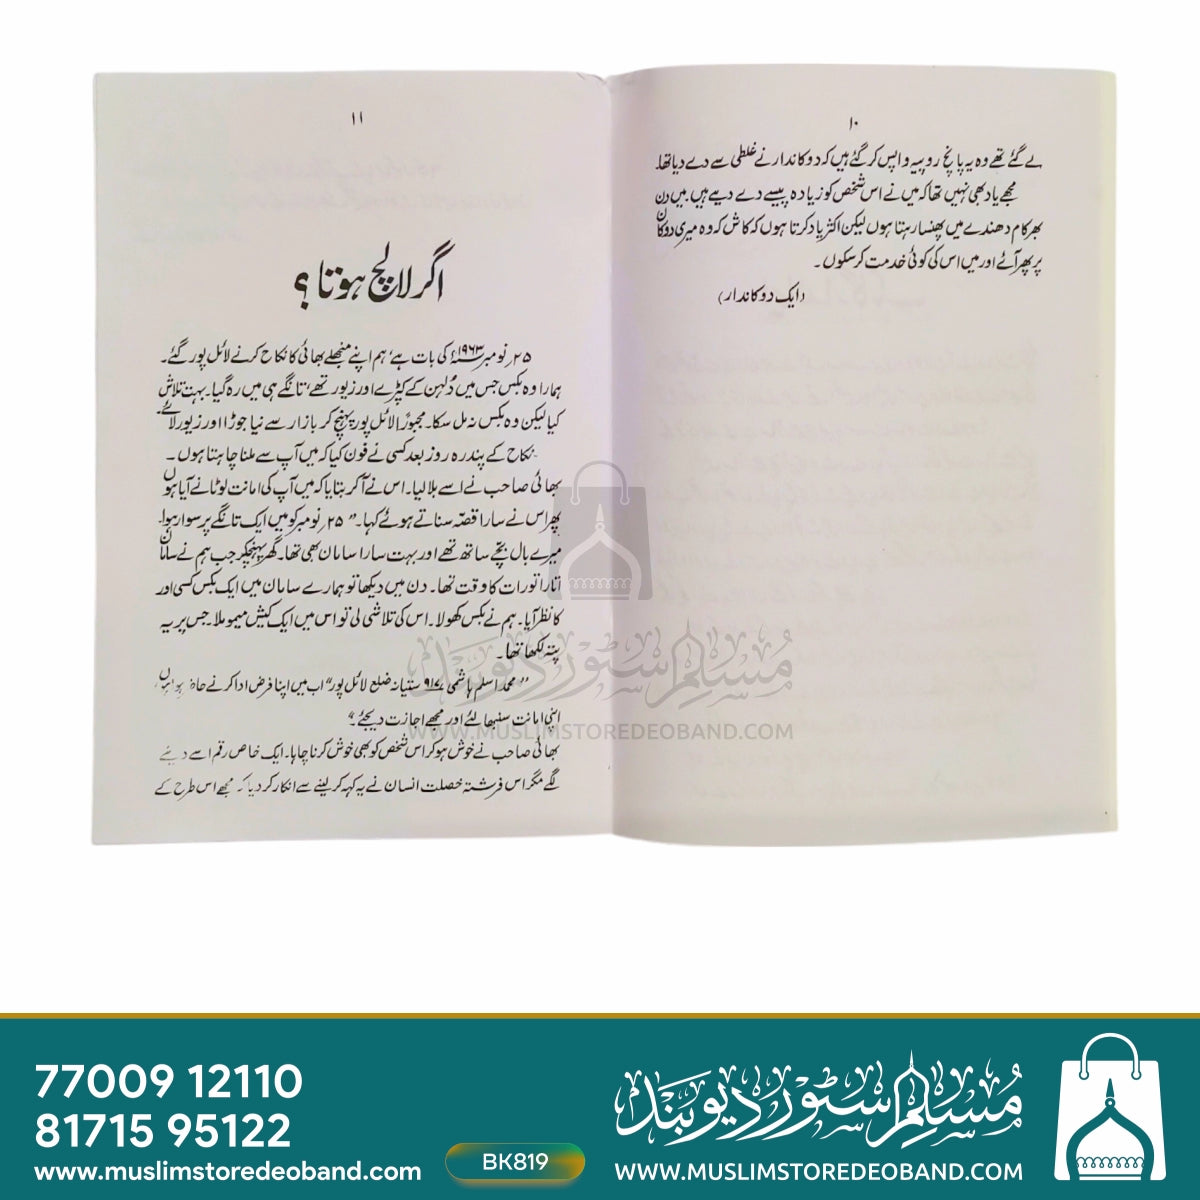 ۱۰
لے گئے تھے وہ یہ پانچ روپیہ واپس کر گئے ہیں کہ دوکاندار نے غلطی سے دے دیا تھا۔
مجھے یاد بھی نہیں تھا کہ میں نے اس شخص کو زیادہ پیسے دے دیے ہیں۔ میں دن
بھر کام دھندے میں پھنسا رہتا ہوں لیکن اکثر یاد کرتا ہوں کہ کاش کہ وہ میری دوکان
پر پھر آئے اور میں اس کی کوئی خدمت کر سکوں۔
(ایک دوکاندار)
۱۱
اگر لالچ ہوتا؟
۲۵؍نومبر ۱۹۶۳ء کی بات ہے‘ ہم اپنے منجھلے بھائی کا نکاح کرنے لائل پور گئے۔
ہمارا وہ بکس جس میں دُلہن کے کپڑے اور زیور تھے‘ تانگے ہی میں رہ گیا۔ بہت تلاش
کیا لیکن وہ بکس نہ مل سکا۔ مجبوراً لائل پور پہنچ کر بازار سے نیا جوڑا اور زیور لائے۔
نکاح کے پندرہ روز بعد کسی نے فون کیا کہ میں آپ سے ملنا چاہتا ہوں۔
بھائی صاحب نے اسے بلا لیا۔ اس نے آکر بتایا کہ میں آپ کی امانت لوٹانے آیا ہوں
پھر اس نے سارا قصّہ سناتے ہوئے کہا۔ ”۲۵؍نومبر کو میں ایک تانگے پر سوار ہوا۔
میرے بال بچّے ساتھ تھے اور بہت سارا سامان بھی تھا۔ گھر پہنچکر جب ہم نے سامان
اتارا تو رات کا وقت تھا۔ دن میں دیکھا تو ہمارے سامان میں ایک بکس کسی اور
کا نظر آیا۔ ہم نے بکس کھولا۔ اس کی تلاشی لی تو اس میں ایک کیش میمو ملا۔ جس پر یہ
پتہ لکھا تھا۔
”محمد اسلم ہاشمی ۹۱۷ ستیانہ ضلع لائل پور“ اب میں اپنا فرض ادا کرنے حاضر ہوا ہوں
اپنی امانت سنبھالئے اور مجھے اجازت دیجئے۔“
بھائی صاحب نے خوش ہو کر اس شخص کو بھی خوش کرنا چاہا۔ ایک خاص رقم اسے دینے
لگے مگر اس فرشتہ خصلت انسان نے یہ کہہ کر لینے سے انکار کر دیا کہ مجھے اس طرح کے
مُسلم سٹور دیوبند
WWW.MUSLIMSTOREDEOBAND.COM
77009 12110
81715 95122
www.muslimstoredeoband.com
BK819
مُسلم سٹور دیوبند
WWW.MUSLIMSTOREDEOBAND.COM